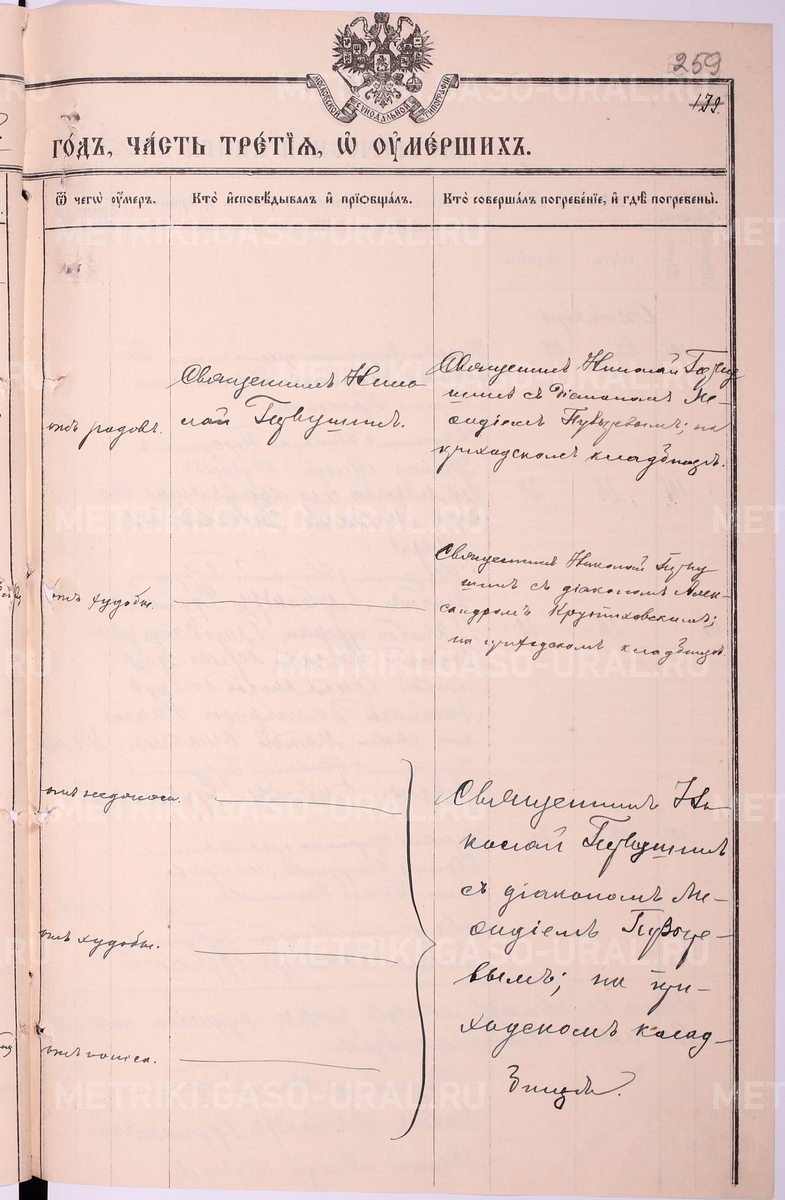 259
139.
МОСКОВСКОЙ СѴНОДАЛЬНОЙ ТИПОГРАФІИ
го́дъ, ча́сть тре́тїѧ, ѡ҆ ᲂу҆ме́ршихъ.
Ѿ чегѡ̀ ᲂу҆́меръ.
Кто̀ и҆сповѣ́дывалъ и҆ прїѡбща́лъ.
Кто̀ соверша́лъ погребе́нїе, и҆ гдѣ̀ погребены̀.
отъ родовъ.
Священникъ Нико
лай Первушинъ.
Священникъ Николай Перву
шинъ съ діакономъ Ме-
ѳодіемъ Пузыревымъ; на
приходскомъ кладбищѣ.
отъ худобы.
Священникъ Николай Перву
шинъ съ діакономъ Алек-
сандромъ Крутиховскимъ;
на приходскомъ кладбищѣ
отъ недоноси.
отъ худобы.
отъ поноса.
Священникъ Ни
колай Первушинъ
съ діакономъ Ме-
ѳодіемъ Пузыре-
вымъ; на при-
ходскомъ клад-
бищѣ.
METRIKI.GASO-URAL.RU